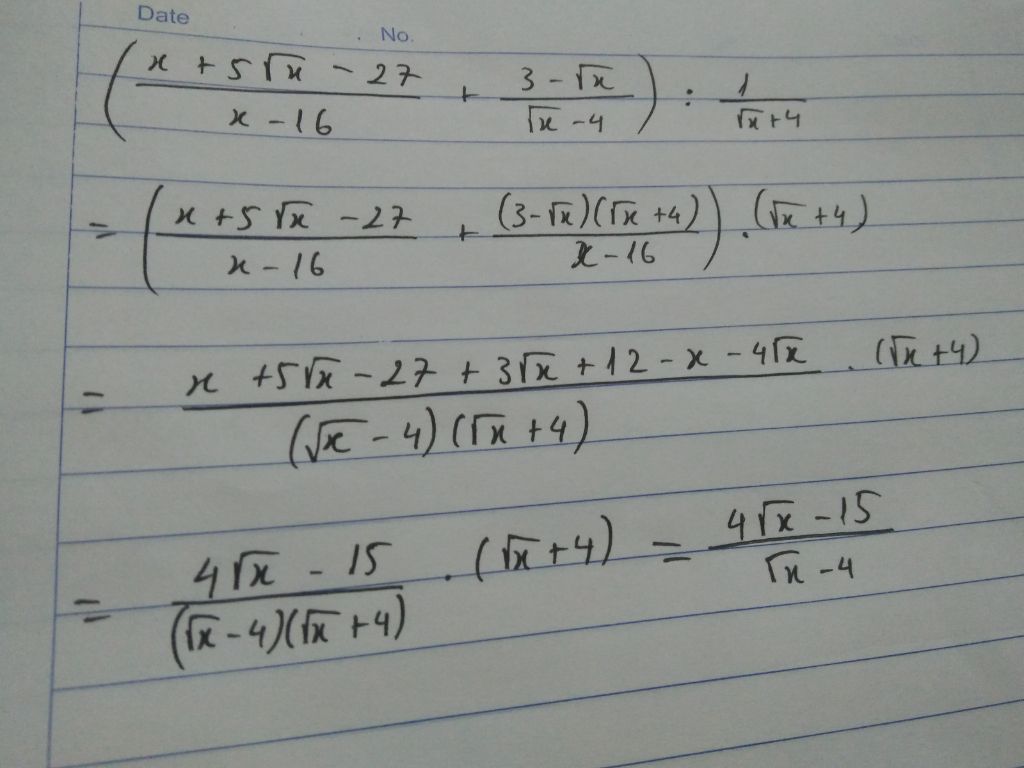 Date No.
( (x + 5√x - 27)/(x - 16) + (3 - √x)/(√x - 4) ) : 1/(√x + 4)
= ( (x + 5√x - 27)/(x - 16) + ((3-√x)(√x + 4))/(x - 16) ) . (√x + 4)
= (x + 5√x - 27 + 3√x + 12 - x - 4√x)/((√x - 4)(√x + 4)) . (√x + 4)
= (4√x - 15)/((√x - 4)(√x + 4)) . (√x + 4) = (4√x - 15)/(√x - 4)